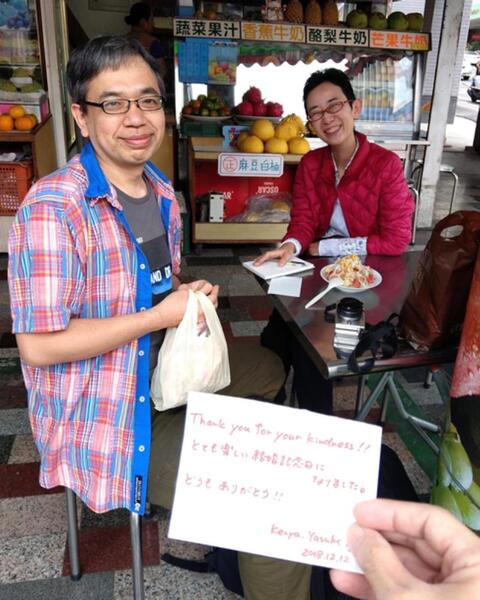 蔬菜果汁 香蕉牛奶 酪梨牛奶 芒果牛奶
正 麻豆白柚
OSCAR
Thank you for your kindness!!
とても楽しい結婚記念日に
なりました。
どうも ありがとう!!
2018.12.12